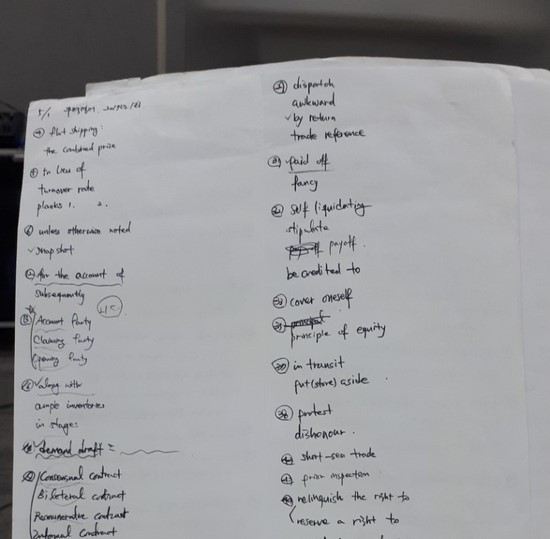 5/1
flat shipping:
the combined price
In lieu of
turnover rate
planks 1. 2.
unless otherwise noted
✓ snapshot
for the account of
subsequently
Account Party
L/C
Claiming Party
Opening Party
✓ along with
ample inventories
in stages
✓ demand draft =
Consensual contract
Bilateral contract
Remunerative contract
Informal contract
dispatch
awkward
✓ by return
trade reference
paid off
fancy
self liquidating
stipulate
payoff.
be credited to
cover oneself
principle of equity
in transit
put (store) aside
protest
dishonour.
short-sea trade
prior inspection
relinquish the right to
reserve a right to